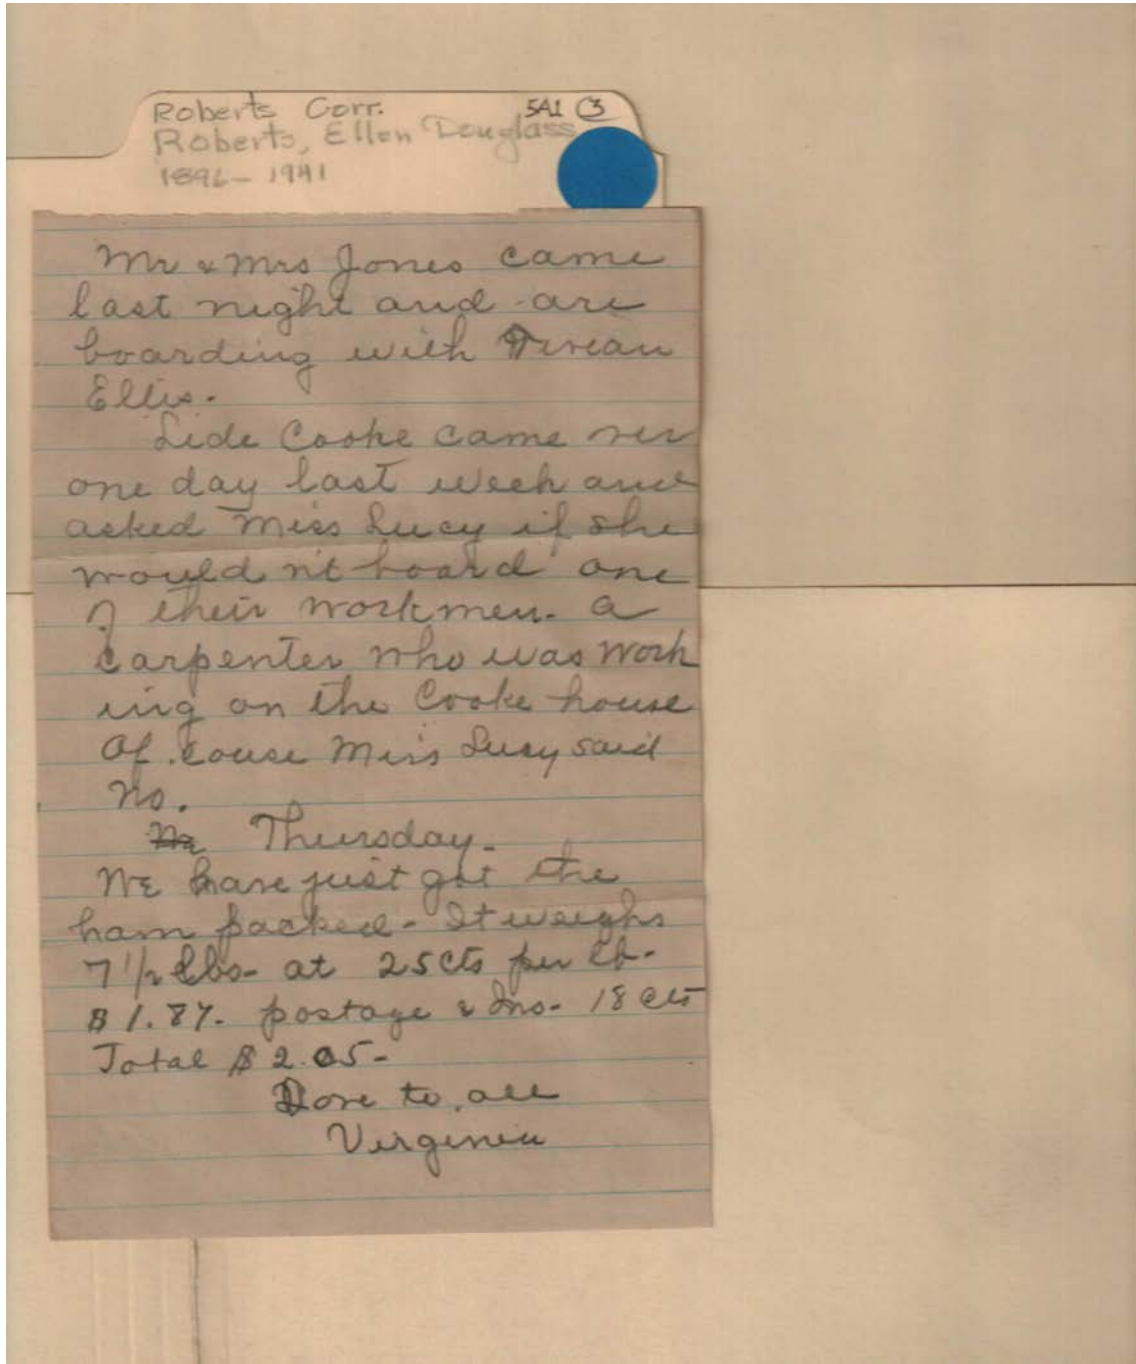 Roberts Corr. 5A1 3
Roberts, Ellen Douglass
1896 - 1941
Mr & Mrs Jones came
last night and are
boarding with
Ellis.
Lide Cooke came
one day last week and
asked Miss Lucy if she
would n't board one
of their workmen - a
carpenter who was work
ing on the Cooke house
Of couse Miss Lucy said
No.
Thursday.
We have just got the
ham packed - It weighs
7 1/2 lbs - at 25 cts per lb -
$1.87. postage & Ins - 18 cts
Total $2.05 -
Love to all
Virginia